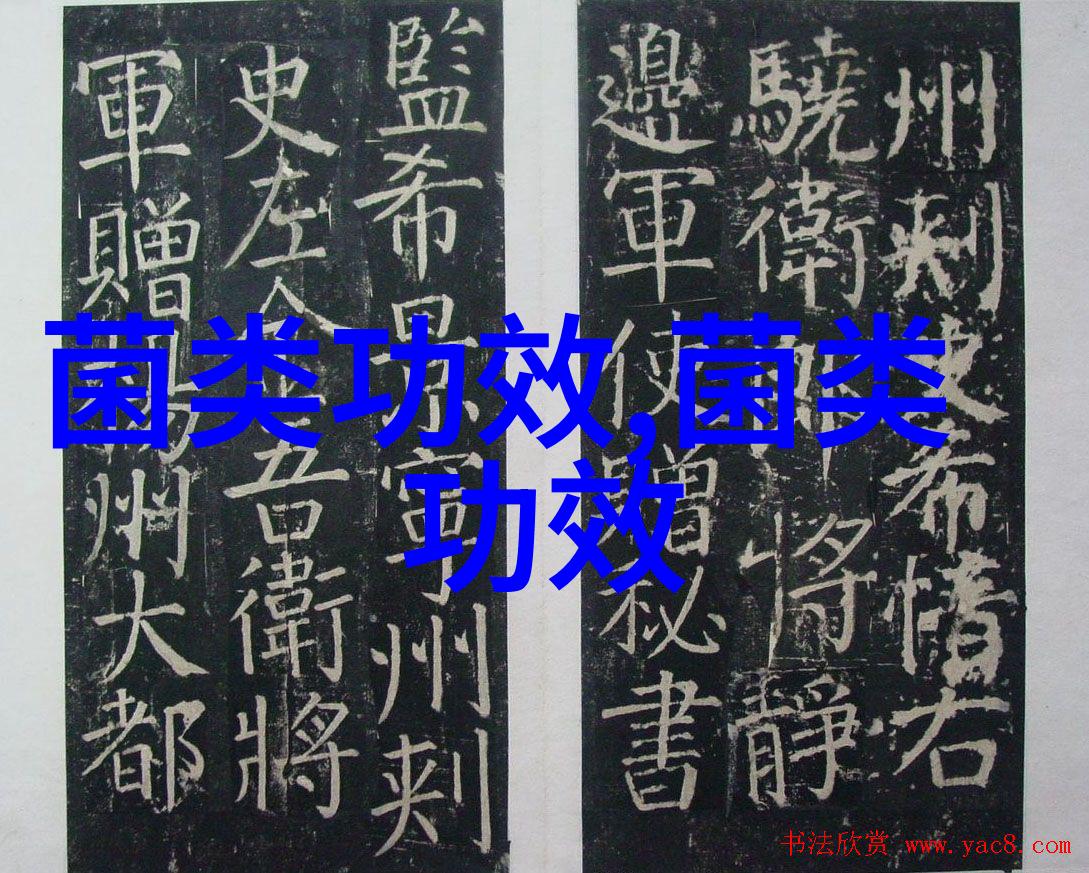 州刺史希愔右
驍衛郎將靜
邊軍使贈秘書
監希景寧州刺
史左金吾衛將
軍贈揚州大都
菌类功效,菌类
功效
书法欣赏 www.yac8.com